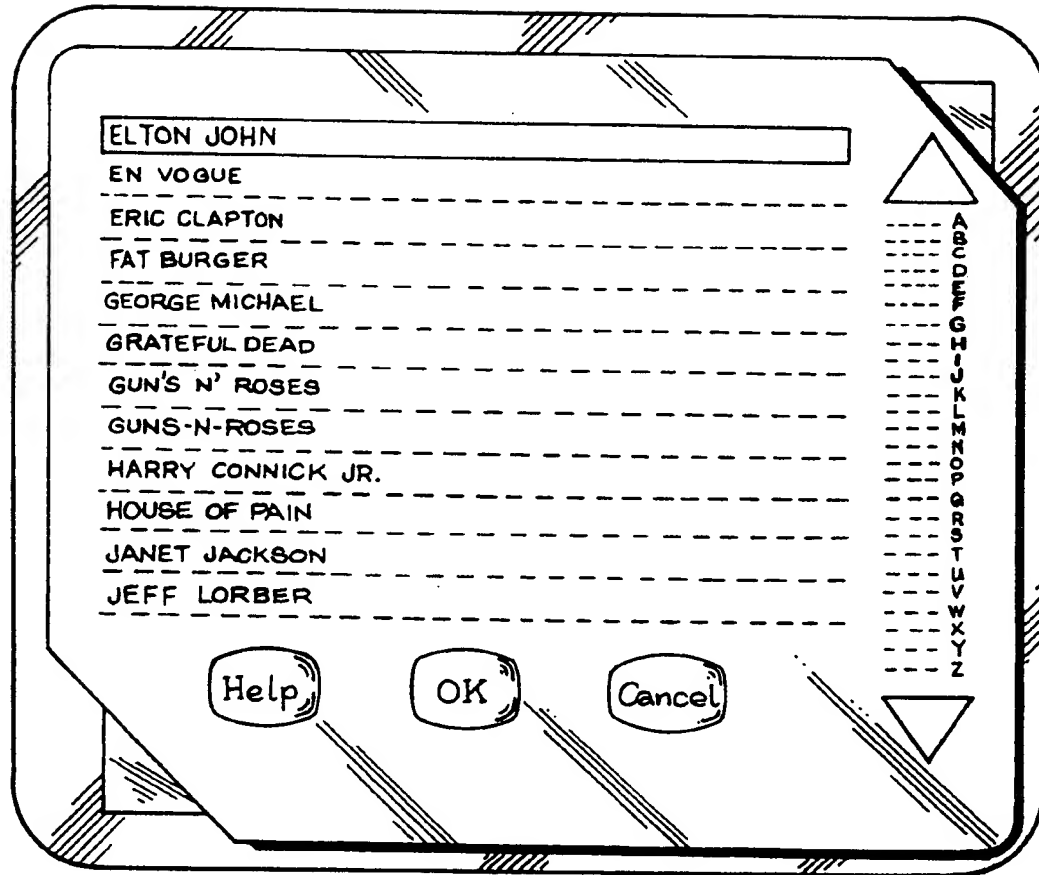 ELTON JOHN
EN VOGUE
ERIC CLAPTON
FAT BURGER
GEORGE MICHAEL
GRATEFUL DEAD
GUN'S N' ROSES
GUNS-N-ROSES
HARRY CONNICK JR.
HOUSE OF PAIN
JANET JACKSON
JEFF LORBER
A
B
C
D
E
F
G
H
I
J
K
L
M
N
O
P
Q
R
S
T
U
V
W
X
Y
Z
Help
OK
Cancel